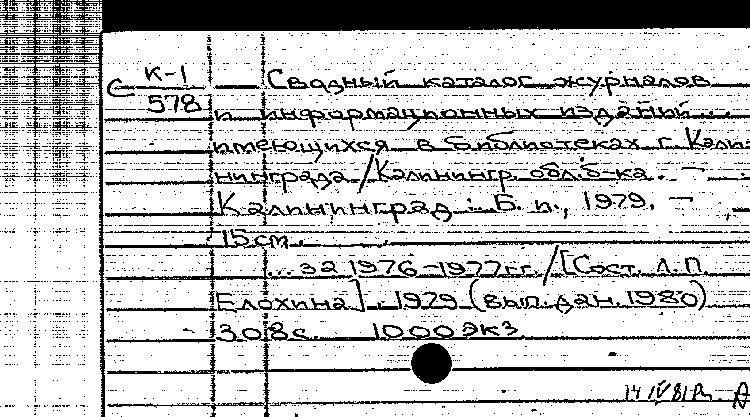 С К-1
578
Сводный каталог журналов
и информационных изданий ...
имеющихся в библиотеках г. Кали-
нинграда / Калинингр. обл. б-ка. –
Калининград : Б. и., 1979. –
15 см.
... за 1976-1977 гг. / [Сост. Л.П.
Елохина]. 1979 (вып. дан. 1980)
308 с. 1000 экз.
14 IV 81